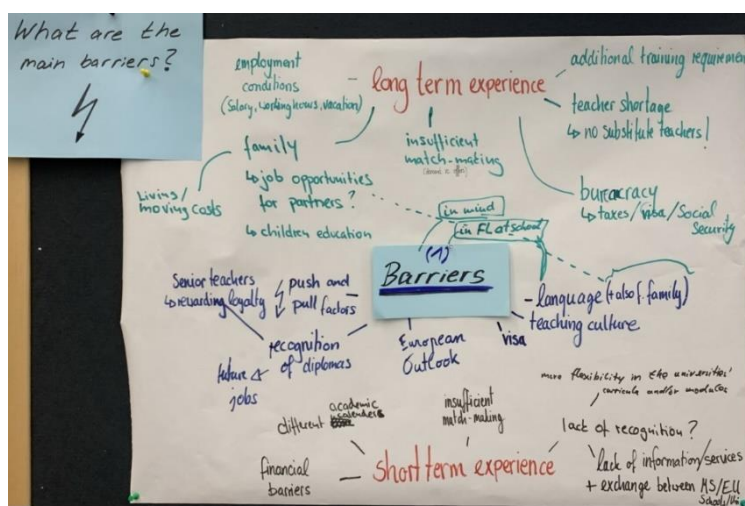 What are the
main barriers?
employment
conditions
(Salary, working hours, vacation)
long term experience
additional training requirement
teacher shortage
↳ no substitute teachers!
insufficient
match-making
family
↳ job opportunities
for partners?
↳ children education
Living/
moving costs
bureacracy
↳ taxes/visa/Social
Security
in mind
in FL at school
(1)
Barriers
Senior teachers
↳ rewarding loyalty
push and
pull factors
recognition
of diplomas
future
jobs
European
Outlook
visa
- language (+ also f. family)
teaching culture
more flexibility in the universities'
curricula and/or modules
different academic
calenders
insufficient
match-making
lack of recognition?
financial
barriers
short term experience
lack of information/services
+ exchange between MS/EU
Schools/Uni